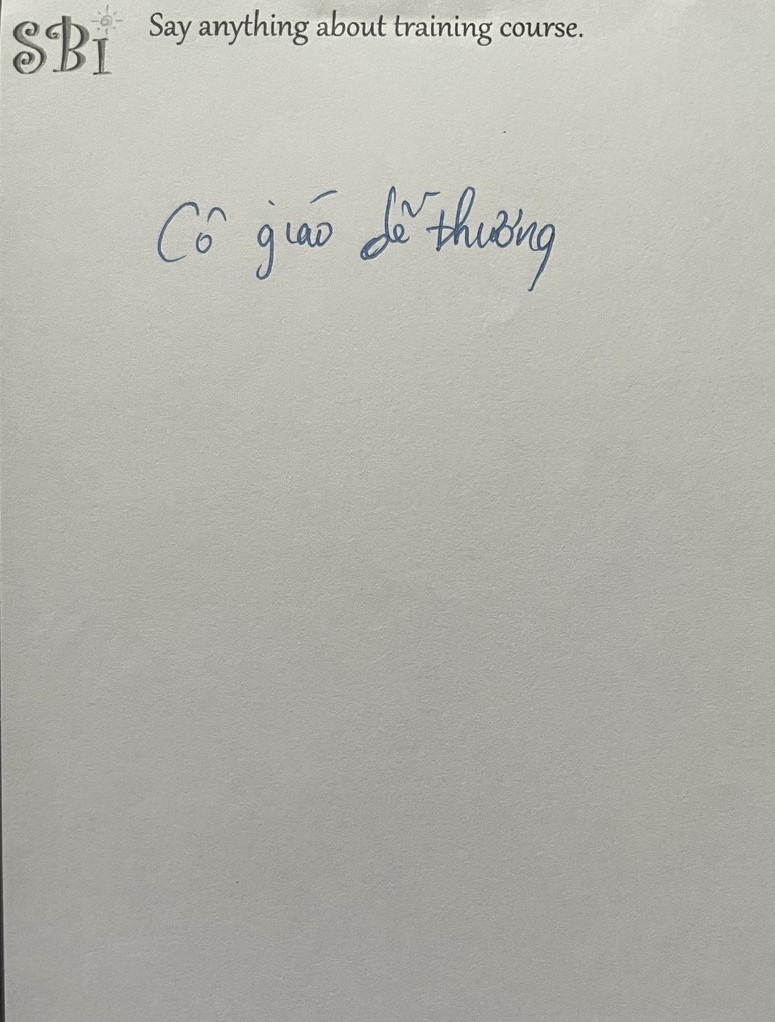 SBI Say anything about training course.
Cô giáo dễ thương